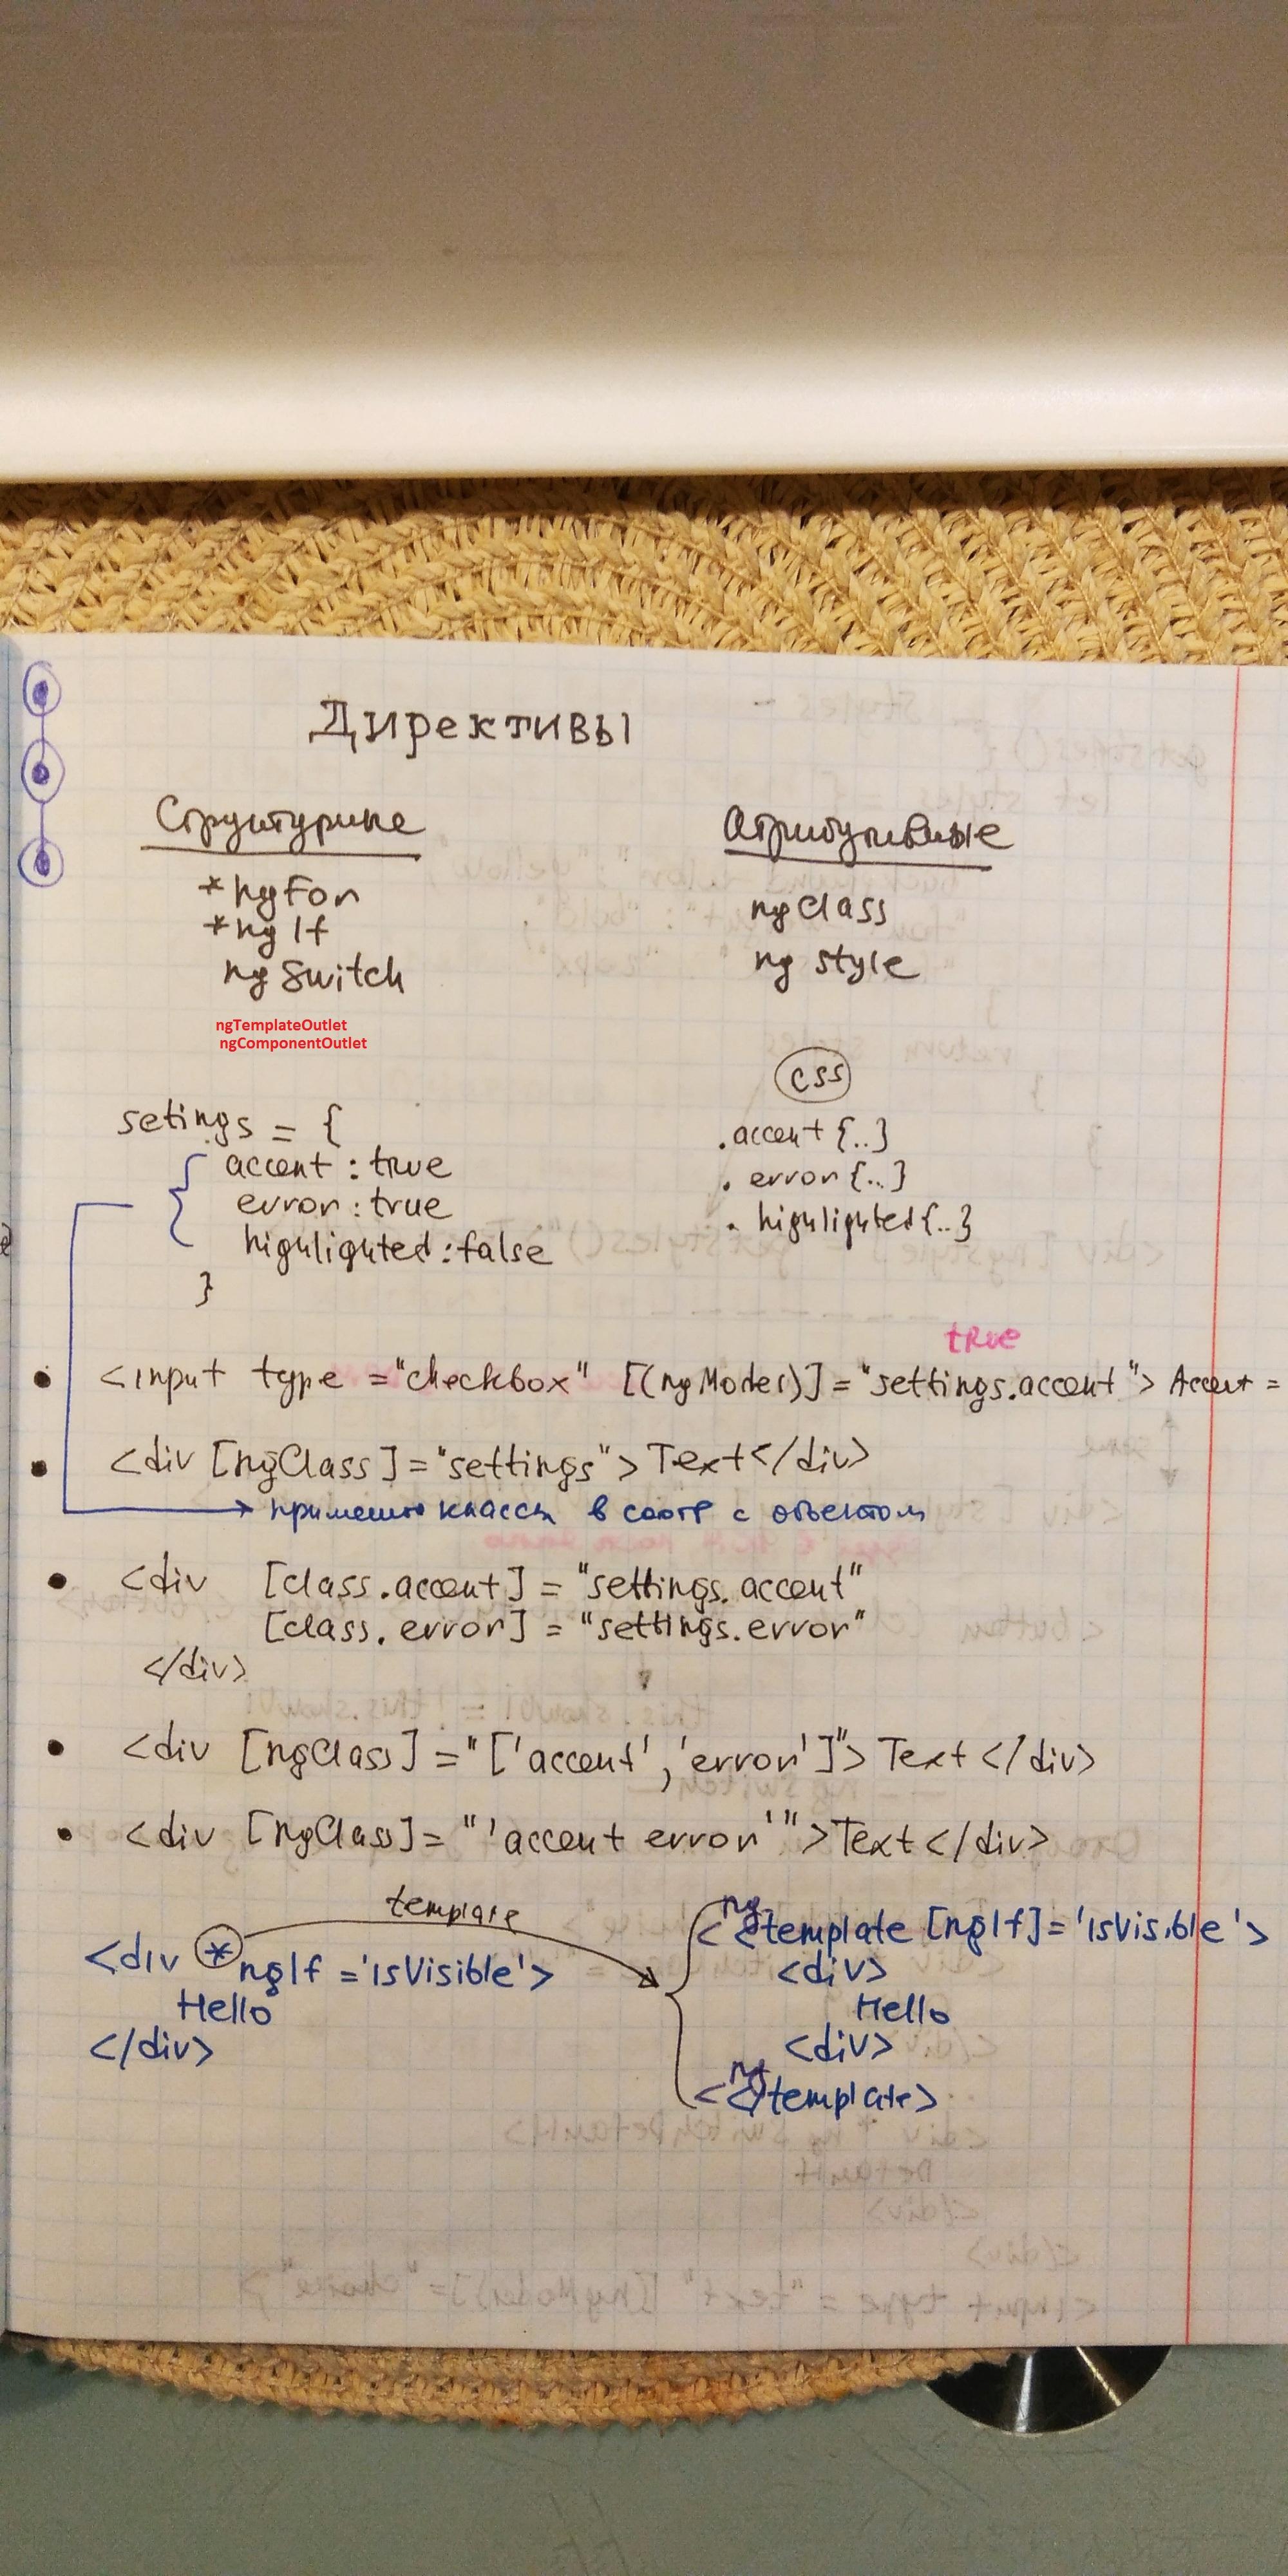 Директивы
Структурные
*ngFor
*ngIf
ngSwitch
ngTemplateOutlet
ngComponentOutlet
Атрибутивные
ngClass
ng style
setings = {
accent : true
error : true
highlighted : false
}
css
.accent {..}
. error {..}
. highlighted {..}
true
<input type ="checkbox" [(ngModel)] = "settings.accent"> Accent =
<div [ngClass] = "settings"> Text </div>
применит классы в соотв с объектом
<div [class.accent] = "settings.accent"
[class.error] = "settings.error"
</div>
<div [ngClass] = "['accent', 'error']"> Text </div>
<div [ngClass] = "'accent error'"> Text </div>
template
<div *ngIf ='isVisible'>
Hello
</div>
<ng template [ngIf] = 'isVisible'>
<div>
Hello
<div>
</ng template>